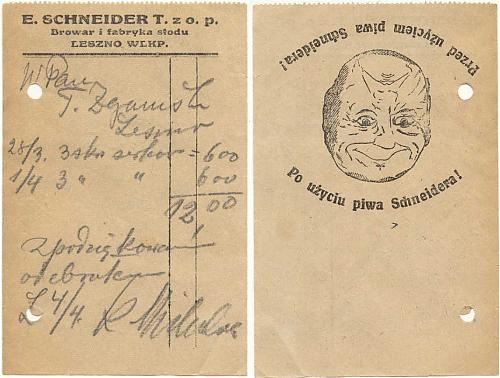 E. SCHNEIDER T. z o. p.
Browar i fabryka słodu
LESZNO WLKP.
W Pan
T.
Leszno
28/3. 3 = 6 00
1/4 3 " " 6 00
12,00
z podziękowaniem
odebrałem
L 4/4
Przed użyciem piwa Schneidera!
Po użyciu piwa Schneidera!